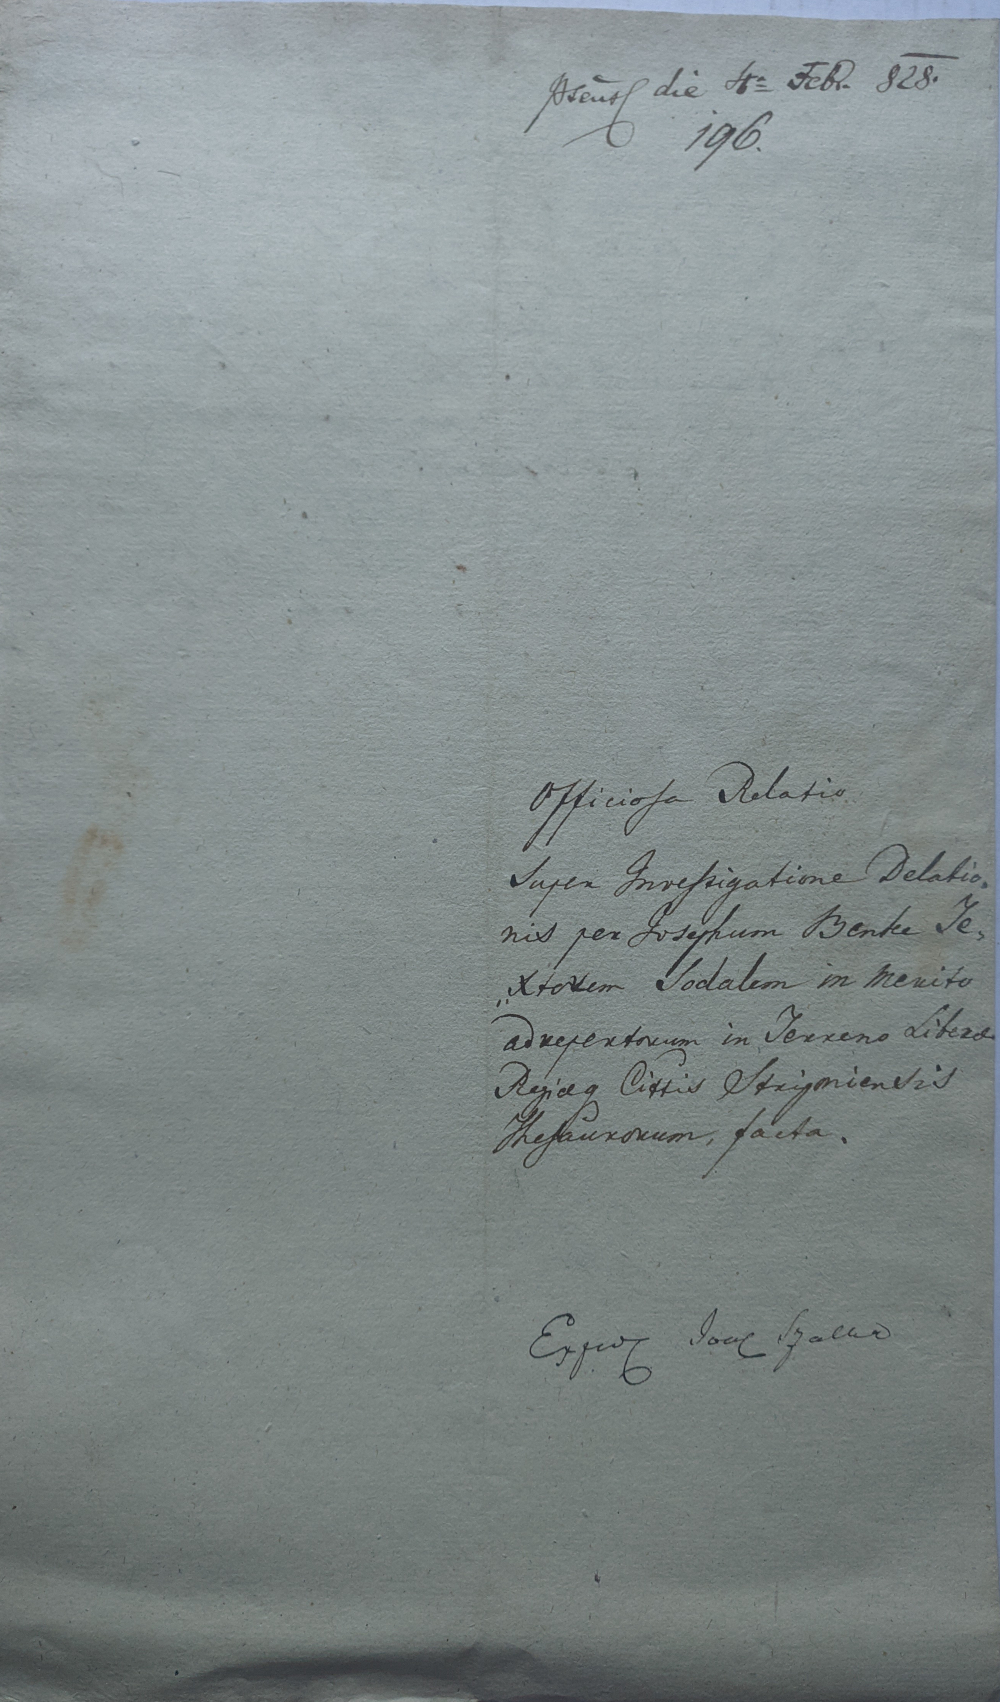 die 4a Febr. 828.
196.
Officiosa Relatio
Super Investigatione Delatio„
nis per Josephum Benke Te„
„xtorem Sodalem in merito
adrepertorum in Terreno Liberæ
Regiæq Cittis Strigoniensis
Thesaurorum, facta.